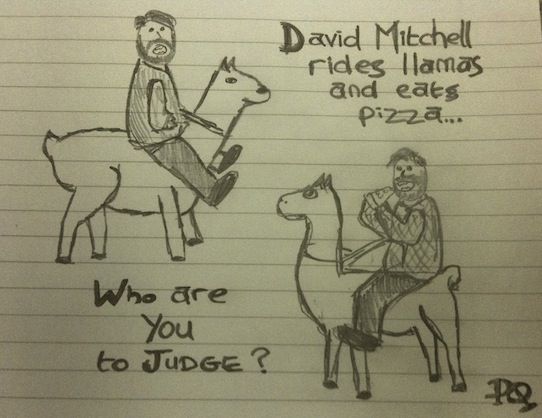 David Mitchell
rides llamas
and eats
pizza...
Who are
You
to JUDGE?